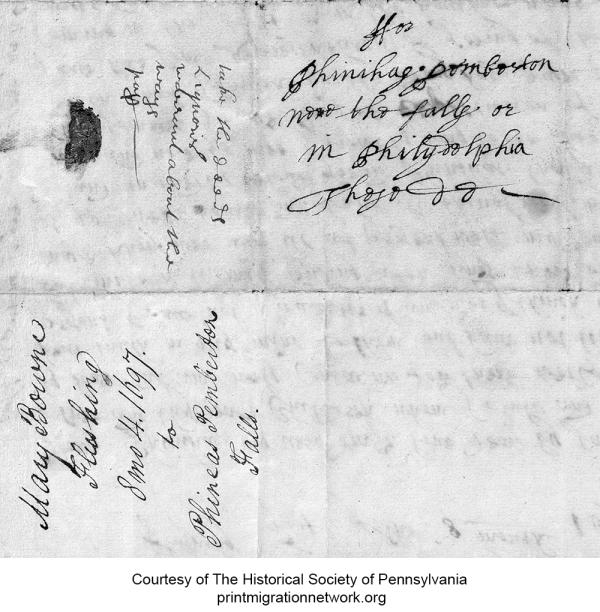 ffor
Phinihas pemborton
nere the falls or
in Philydelphia
These dd
take the deeds
about the
ways
Mary Bowne
Flushing
8 mo 4. 1697.
to
Phineas Pemberton
Falls.
Courtesy of The Historical Society of Pennsylvania
printmigrationnetwork.org